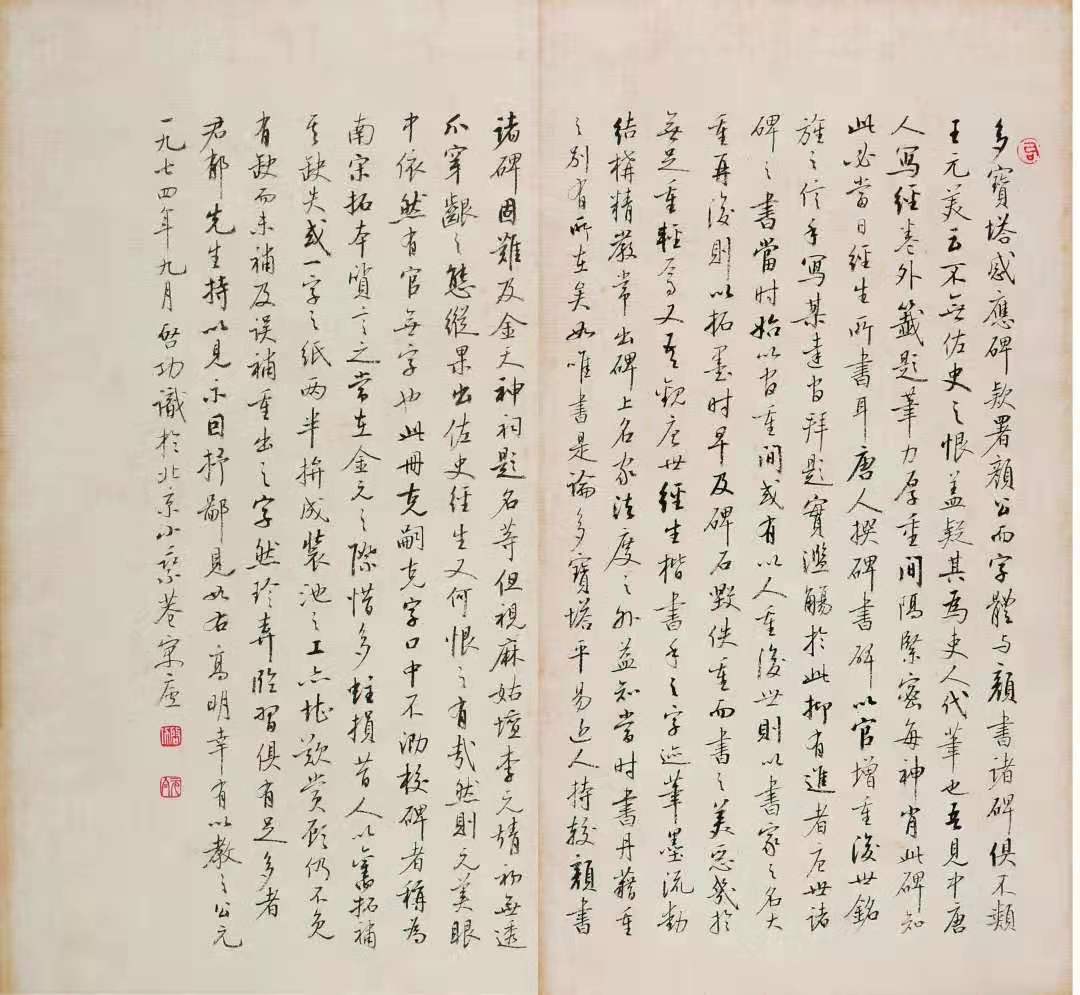 多寶塔感應碑款署顏公而字體与顏書諸碑俱不類
王元美云不無佐史之恨蓋疑其為史人代筆也吾見中唐
人寫經卷外籤題筆力厚重間隔緊密每神肖此碑知
此必當日經生所書耳唐人撰碑書碑以官增重後世銘
旌之信手寫某達官拜題實濫觴於此抑有進者唐世諸
碑之書當时始以官重間或有以人重後世則以書家之名大
重再後則以拓墨时早及碑石毀佚重而書之美惡幾於
無足重輕焉又吾觀唐世經生楷書手之字迹筆墨流動
結構精嚴常出碑上名家法度之外益知當时書丹藉重
之别有所在矣如唯書是論多寶塔平易近人持較顏書
諸碑固難及金天神祠題名等但視麻姑壇李元靖初無透
爪穿齦之態縱果出佐史經生又何恨之有哉然則元美眼
中依然有官無字也此冊克嗣克字口中不泐校碑者稱為
南宋拓本質言之常在金元之際惜多蛀損昔人以舊拓補
其缺失或一字之紙两半拚成裝池之工亦堪歎賞顧仍不免
有缺而未補及误補重出之字然珍弆臨習俱有足多者
君都先生持以見示因抒鄙見如右高明幸有以教之公元
一九七四年九月啓功識於北京小乘巷寓廬